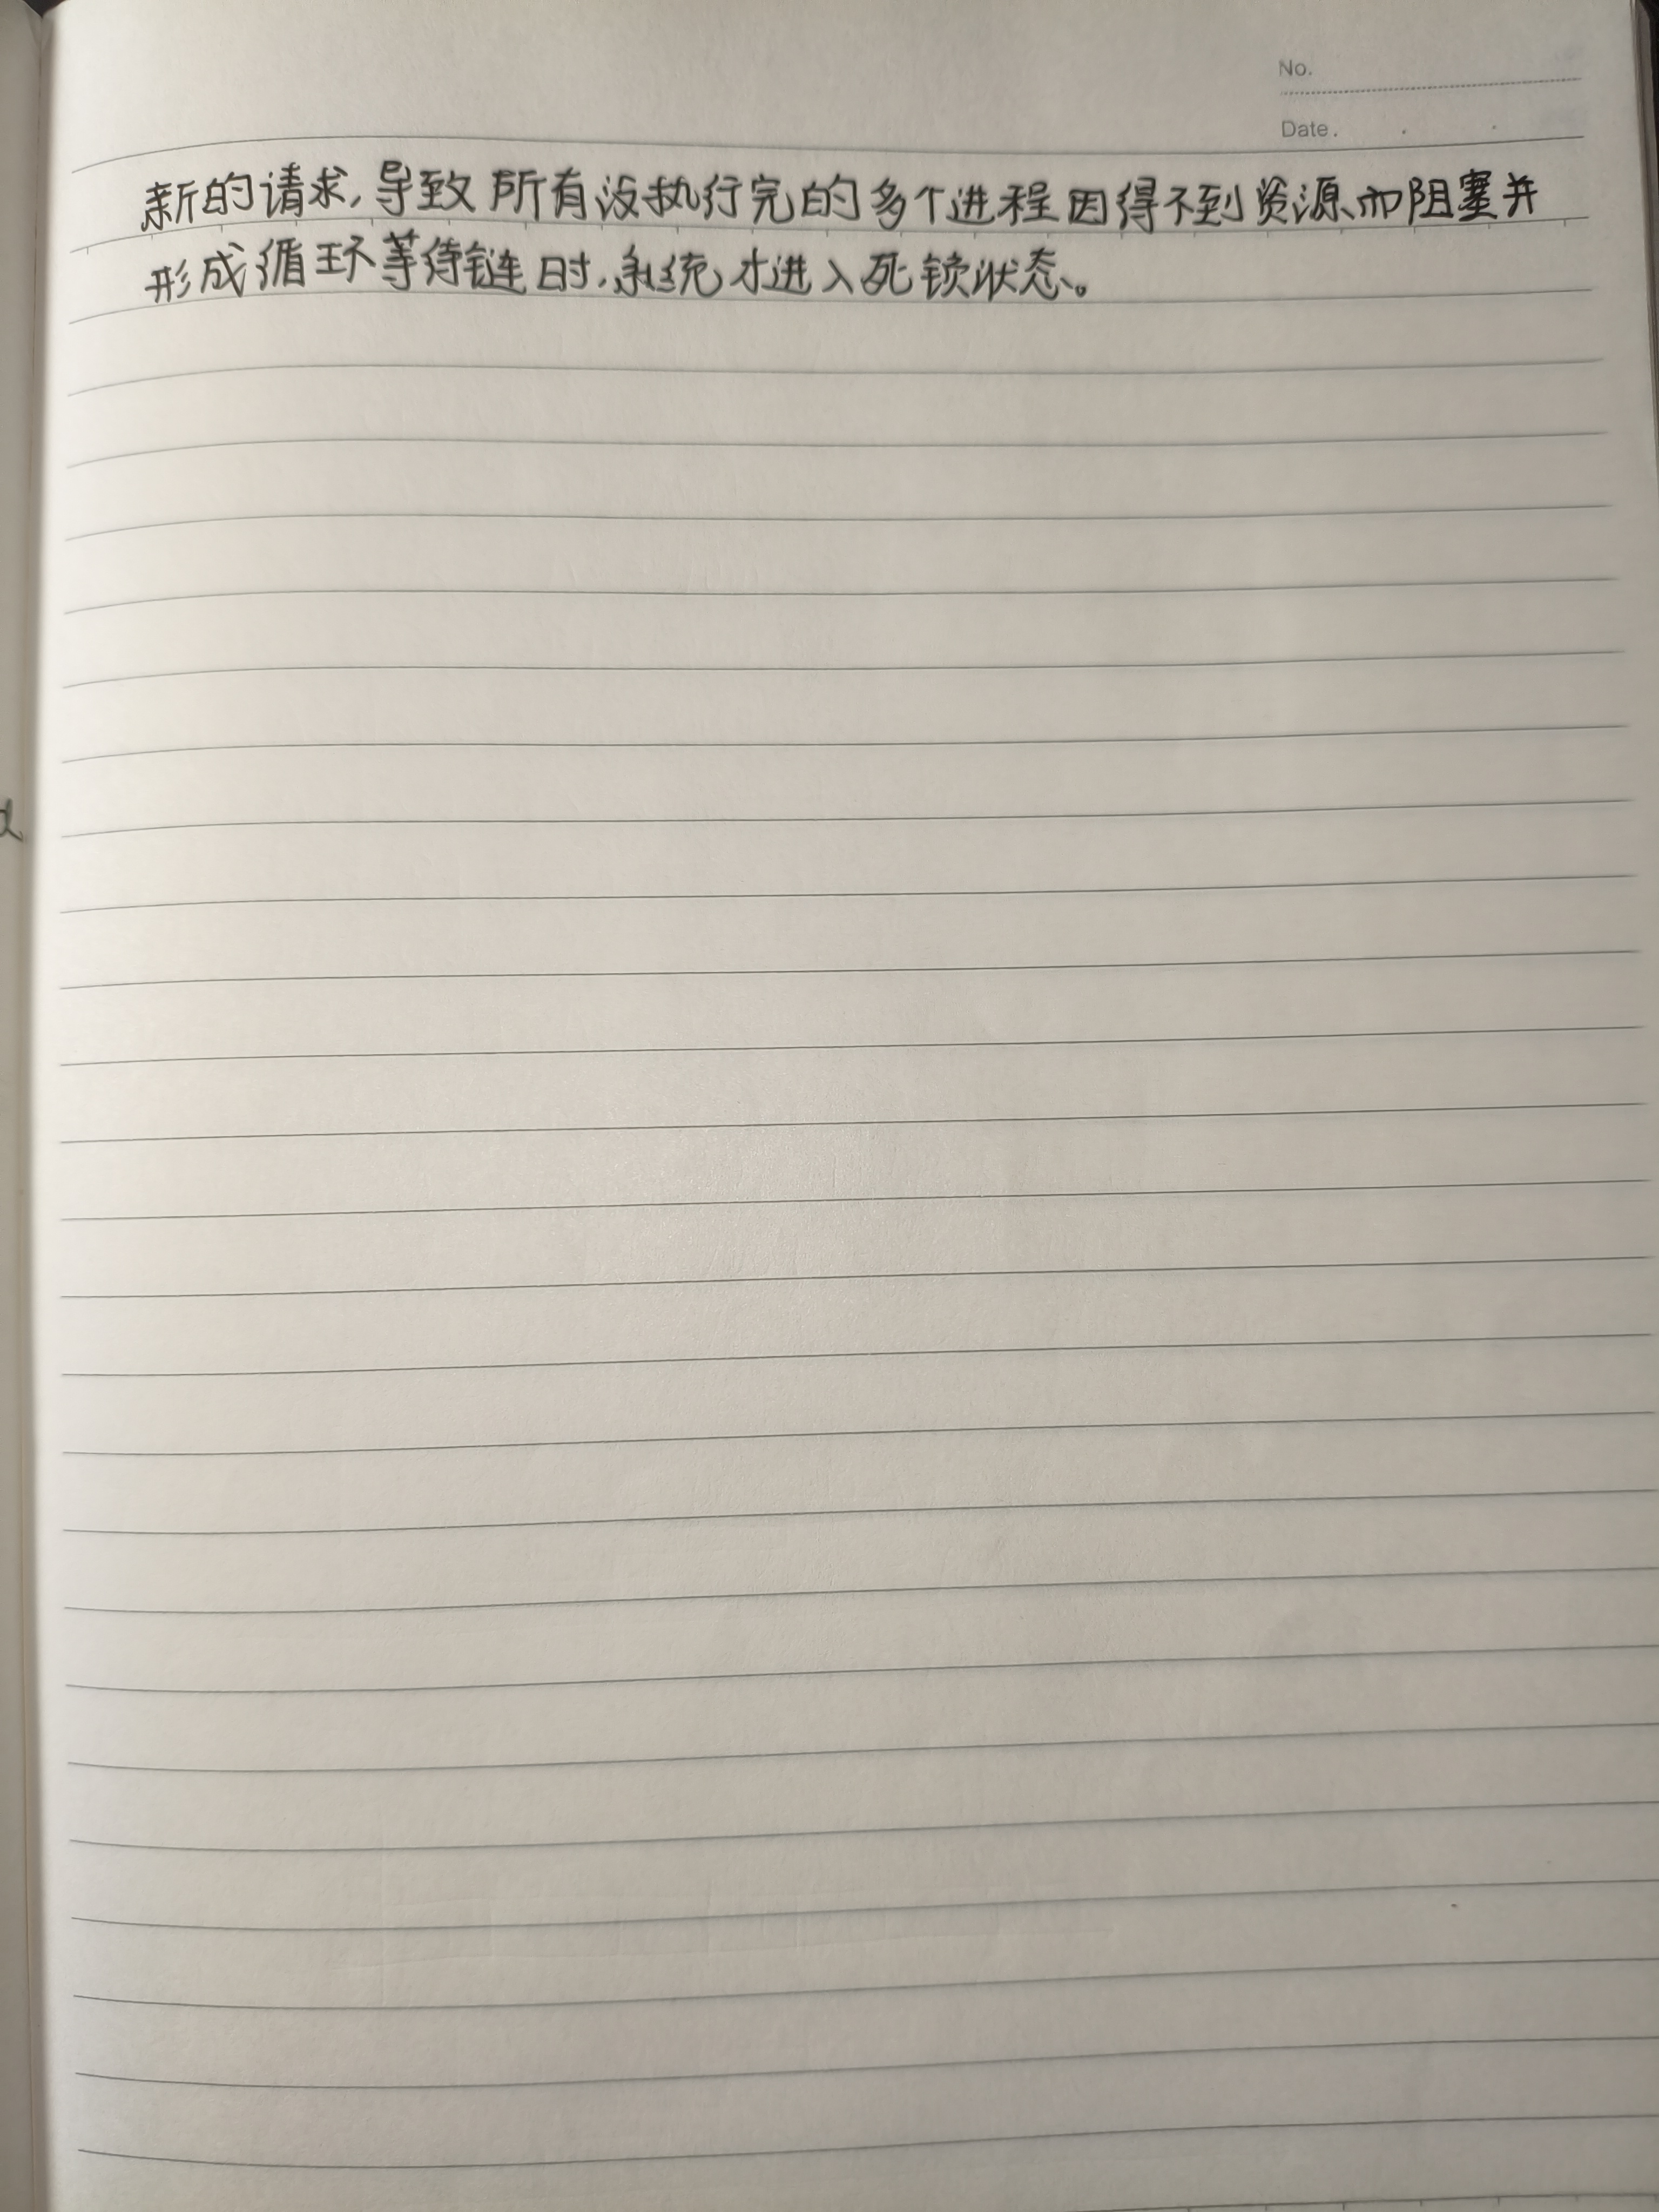 No.
Date.
新的请求,导致所有没执行完的多个进程因得不到资源而阻塞并
形成循环等待链时,系统才进入死锁状态。